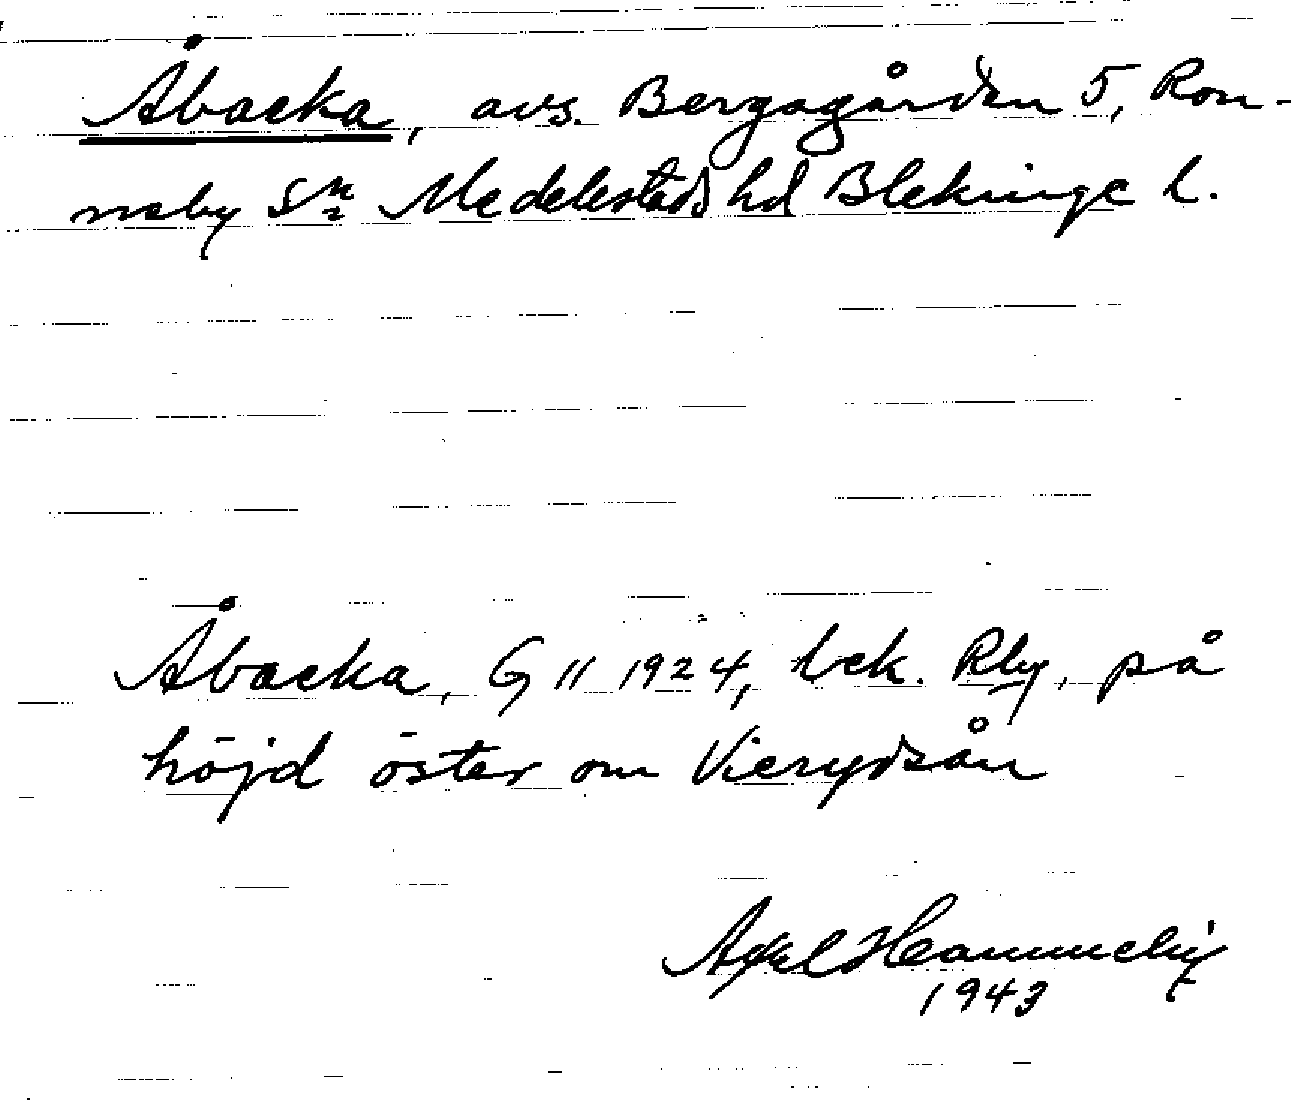 Åbacka, avs. Bergagården 5, Ron-
neby Sn Medelstads hd Blekinge l.
Åbacka, G 11 1924, bek. Rby, på
höjd öster om Vierydsån
Axel
1943